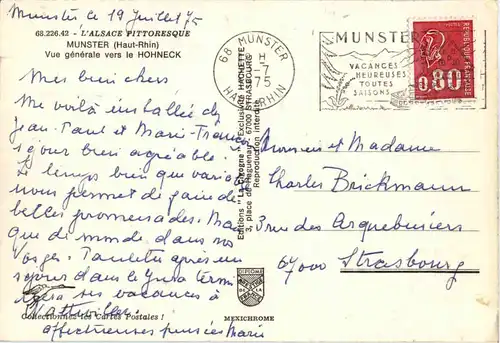 Munster le 19 Juillet 75
68.226.42 - L'ALSACE PITTORESQUE
MUNSTER (Haut-Rhin)
Vue générale vers le HOHNECK
Mes bien chers
Me voilà installée chez
Jean-Paul et Marie-France
séjour bien agréable. Le
temps bien que variable
nous permet de faire de
belles promenades. Mais
que de monde dans nos
Vosges. Paulette après un
séjour dans le Jura termi
ses vacances à
Wattwiller.
affectueuses pensées Marie
Collectionnez les Cartes Postales !
Editions "La Cigogne" Exclusivité HACHETTE
3, place de Haguenau, 67000 STRASBOURG
Reproduction interdite
DIPLOME
DE LA
FRANCE
MEXICHROME
68 MUNSTER
H
-7
75
HAUT-RHIN
MUNSTER
VACANCES
HEUREUSES
TOUTES
SAISONS
0,80
REPUBLIQUE FRANÇAISE
Monsieur et Madame
Charles Brickmann
3 rue des Arquebusiers
67000 Strasbourg